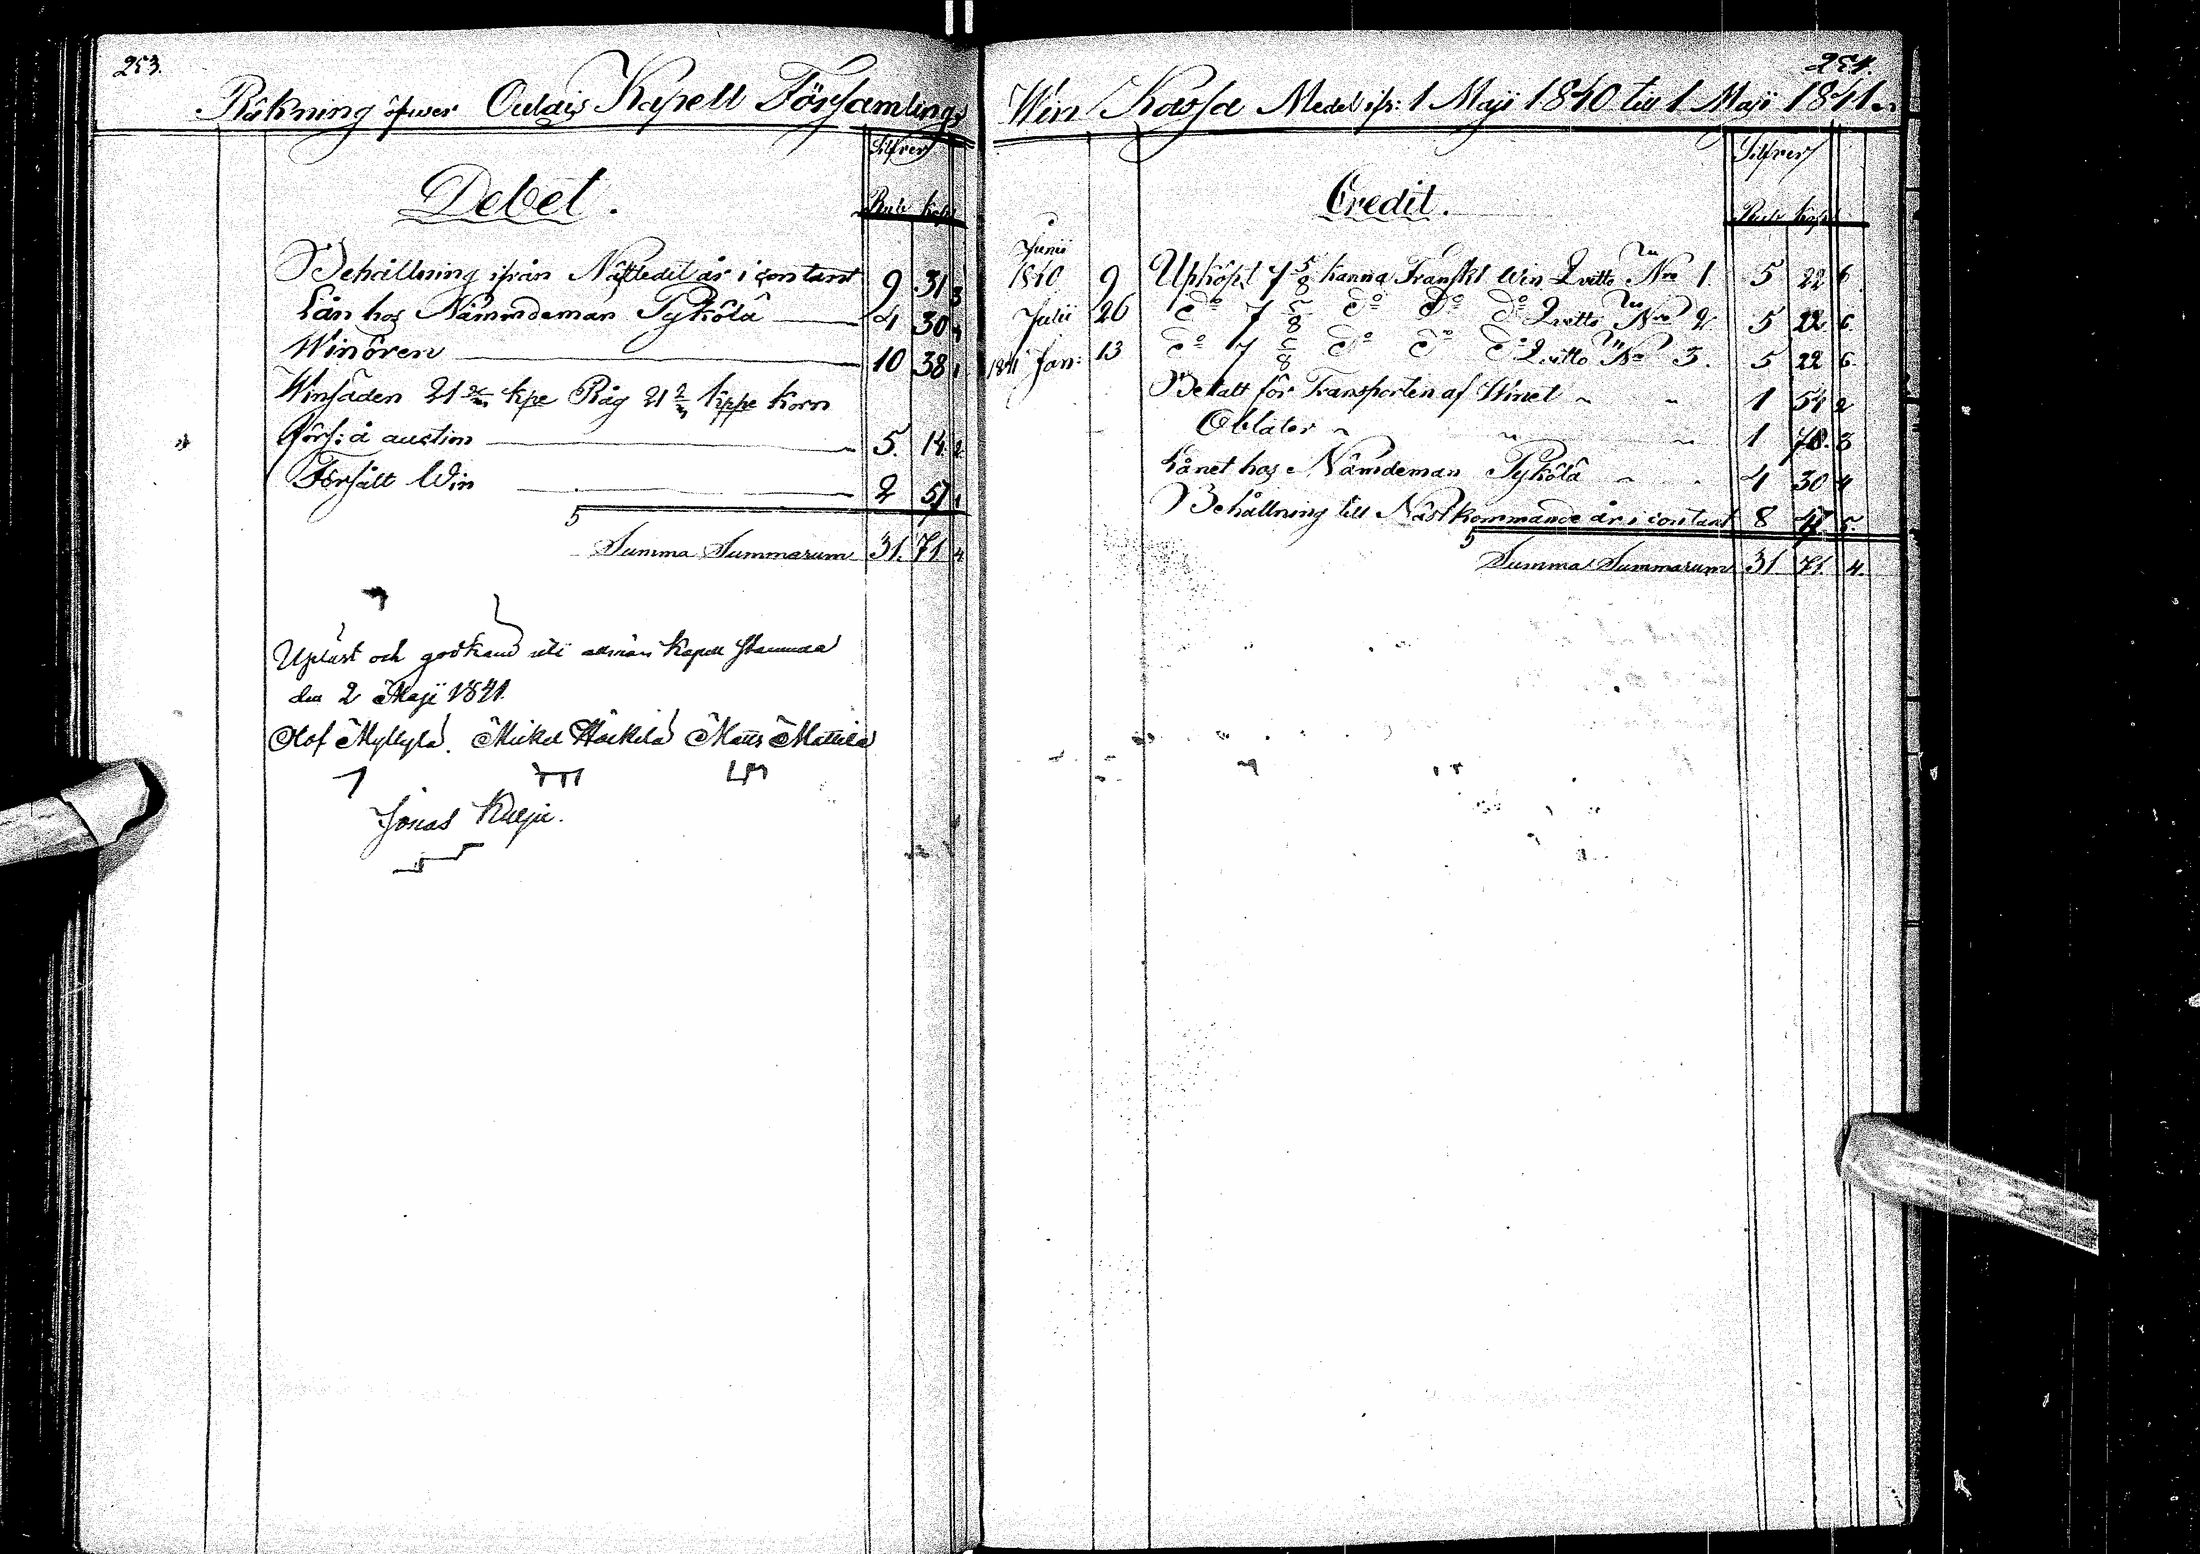 253.
Räkning öfwer Oulais Kapell Församlings
Silfwer
Debet.
Rub kop
Behållning ifrån Nästledit år i contant 9 31 3
Lån hos Nämndeman Pykölä 4 30 4
Winören 10 38 1
Winsäden 21 2/3 kpe Råg 21 2/3 kppe Korn
förs: å auction 5. 14. 2
Försålt Win 2 57 1
Summa Summarum 31. 71. 4
Upläst och godkänd uti allmän Kapell stämma
den 2 Maji 1841.
Olof Myllylä. Mickel Häckilä Matts Mattila
Jonas Kulju.
254.
Win Kassa Medel ifr: 1 Maji 1840 till 1 Maji 1841
Silfwer
Credit.
Rub kop
Junii
1840 9 Upköpt 7 5/8 kanna Franskt Win Qvitto No 1. 5 22 6
Julii 26 Do 7 5/8 Do Do Do Qvitto No 2. 5 22 6.
1841 Jan: 13 Do 7 5/8 Do Do Do Qvitto No 3. 5 22 6.
Betalt för Transporten af Winet " " 1 54 2
Oblater " " " 1 70. 3
Lånet hos Nämdeman Pykölä " " 4 30 4
Behållning till Nästkommande år i contant 8 47 5.
Summa Summarum 31 71. 4.